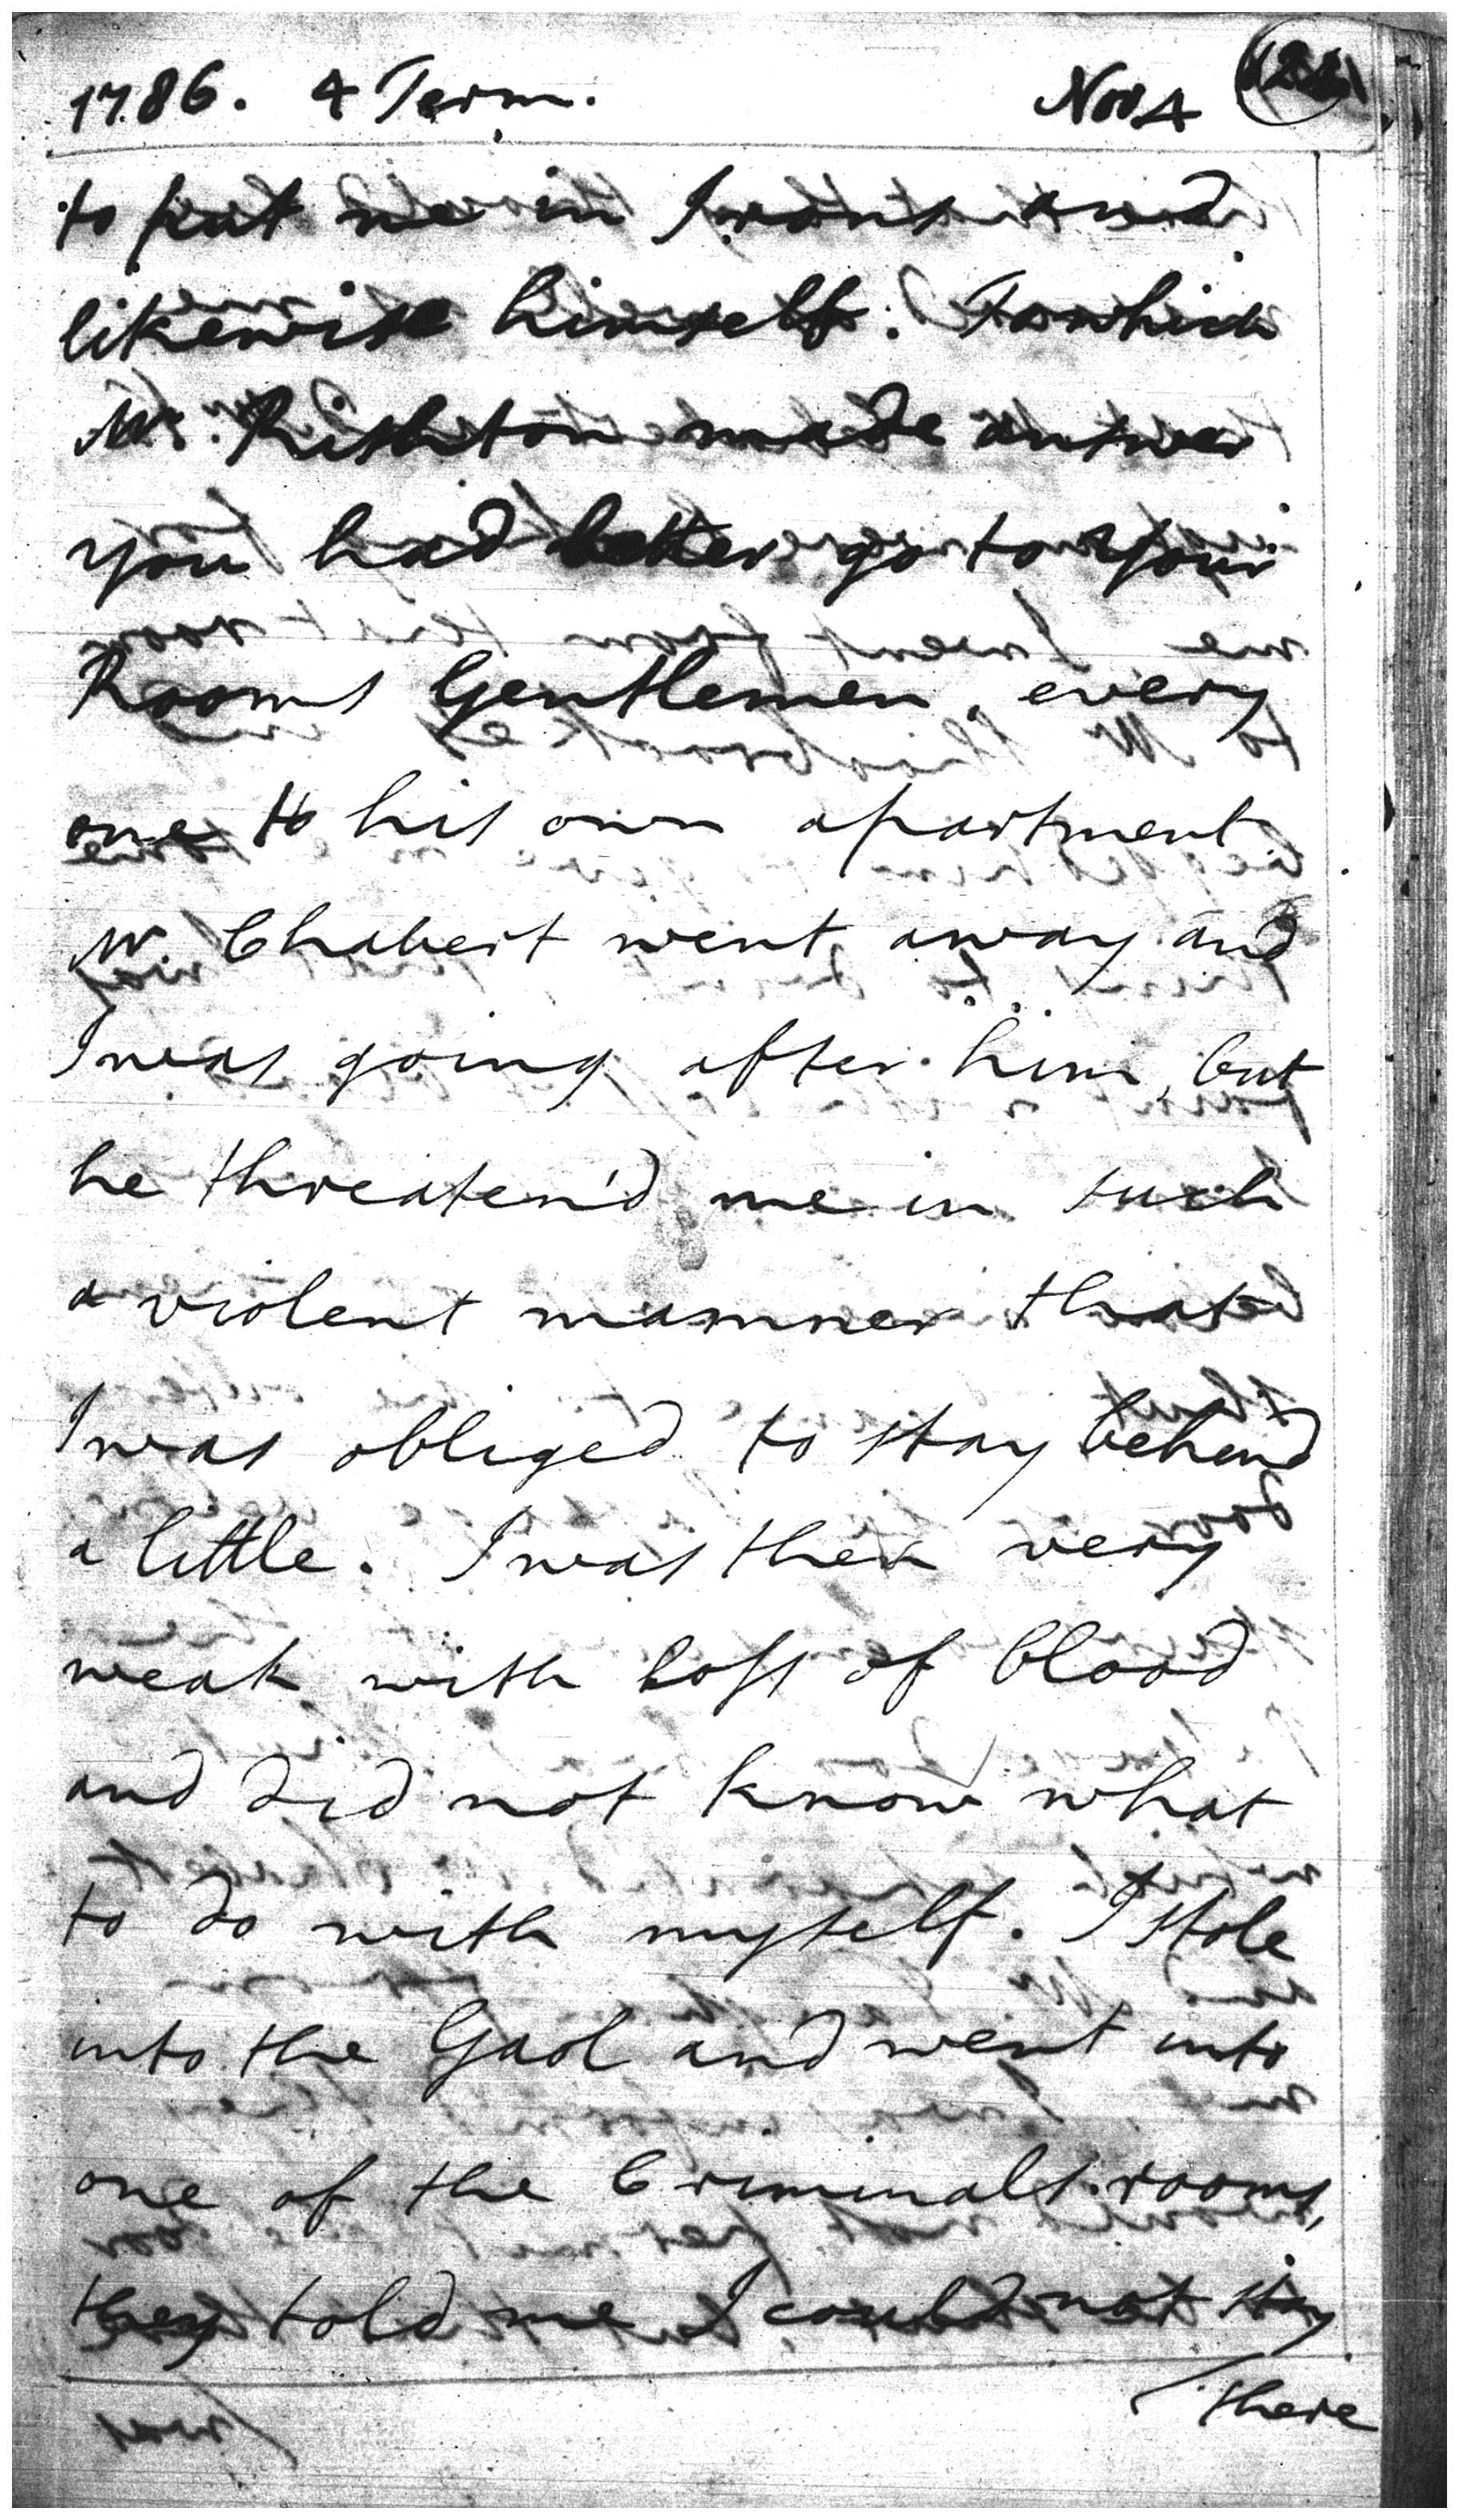 1786. 4 Term. Nov 4
to put me in Irons and
likewise himself. To which
Mr. Rishton made answer
you had better go to Your
Rooms Gentlemen, every
one to his own apartment.
Mr. Chabert went away and
I was going after him, but
he threaten'd me in such
a violent manner that
I was obliged to stay behind
a little. I was then very
weak with loss of blood
and did not know what
to do with myself. I stole
into the Gaol and went into
one of the Criminals rooms,
they told me I could not stay
there